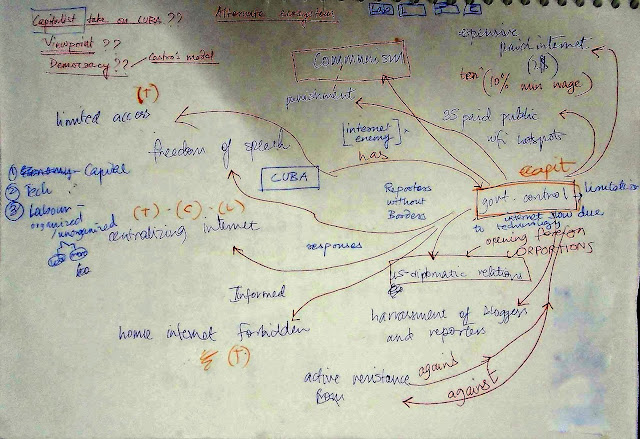 Capitalist take on CUBA ??
Alternate ecosystems
Viewpoint ??
Democracy ?? Castro's model
expensive
paid internet
(2$)
(10% min wage)
COMMUNISM
punishment
(T)
limited access
35 paid public
wifi hotspots
[internet
enemy]
has
freedom of speech
CUBA
① Capital
② Tech
③ Labour
organized
/unorganized
Reporters
without
Borders
capit
govt. control
internet slow due
to technology
opening foreign
CORPORTIONS
(T) · (C) · (L)
centralizing internet
responses
US-diplomatic relations
Informed
harrassment of bloggers
and reporters
home internet forbidden
(T)
active resistance
agains
against